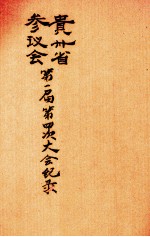 貴州省
参议会
第一届第四次大会纪录